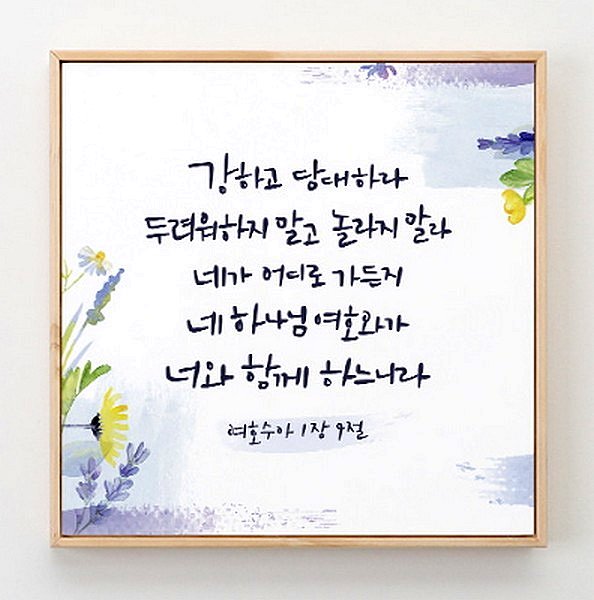 강하고 담대하라
두려워하지 말고 놀라지 말라
네가 어디로 가든지
네 하나님 여호와가
너와 함께 하느니라
여호수아 1장 9절